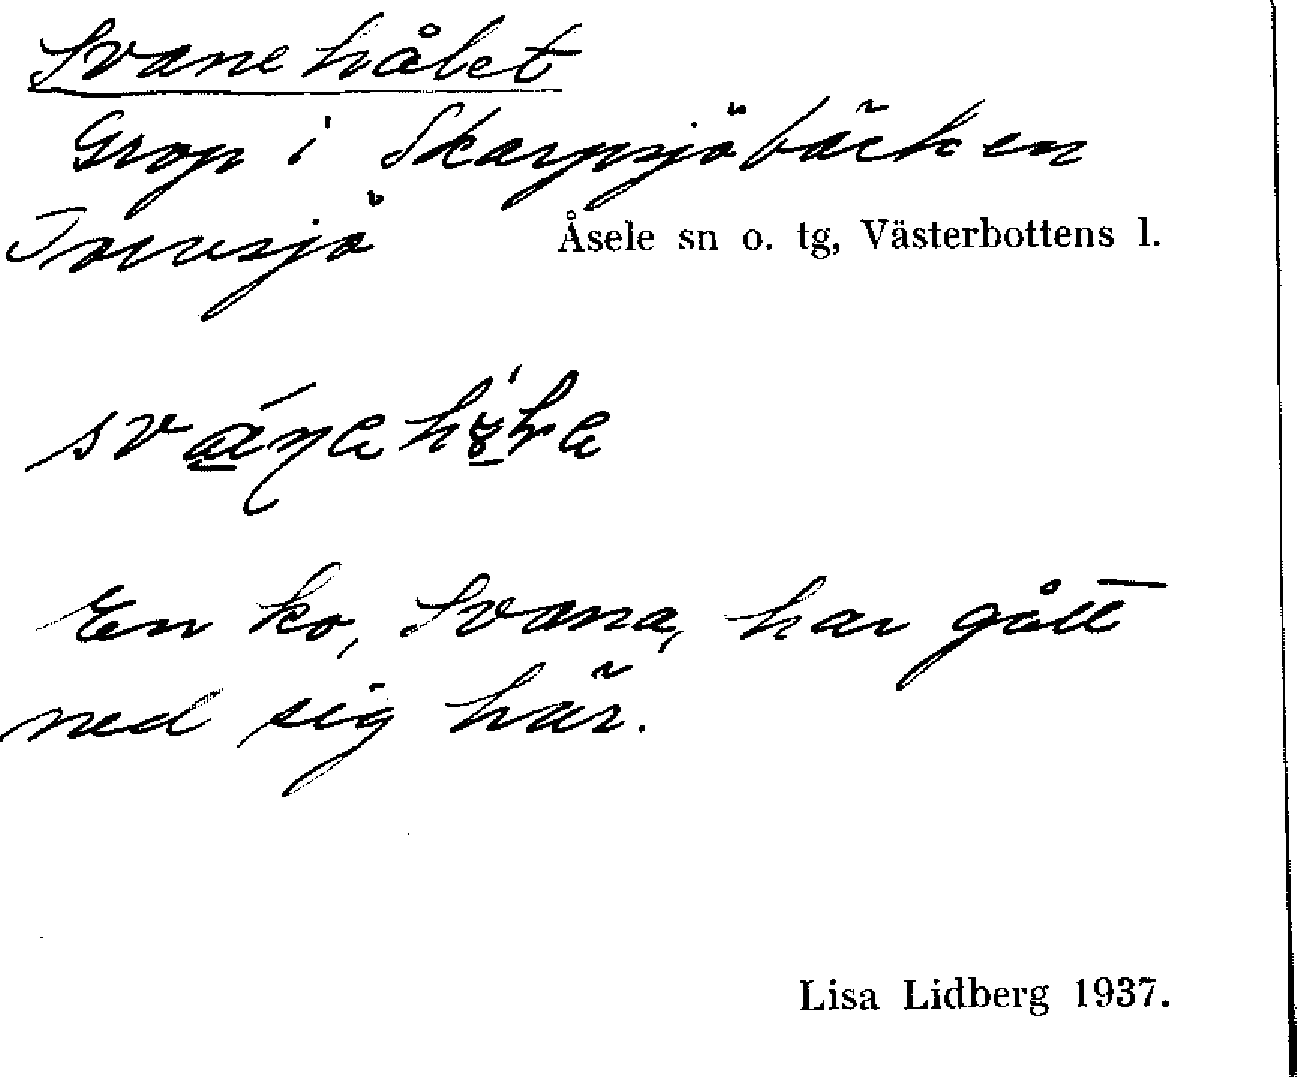 Svanehålet
Grop i Skarpsjöbäcken
Torvsjö Åsele sn o. tg, Västerbottens l.
En ko, Svana, har gått
ned sig här.
Lisa Lidberg 1937.